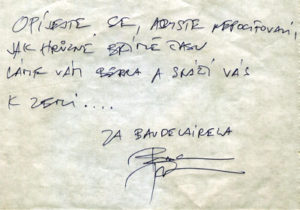 OPÍJEJTE SE, ABYSTE NEPOCIŤOVALI,
JAK HRŮZNÉ BŘÍMĚ ČASU
LÁME VÁM BEDRA A SRÁŽÍ VÁS
K ZEMI....
ZA BAUDELAIREA